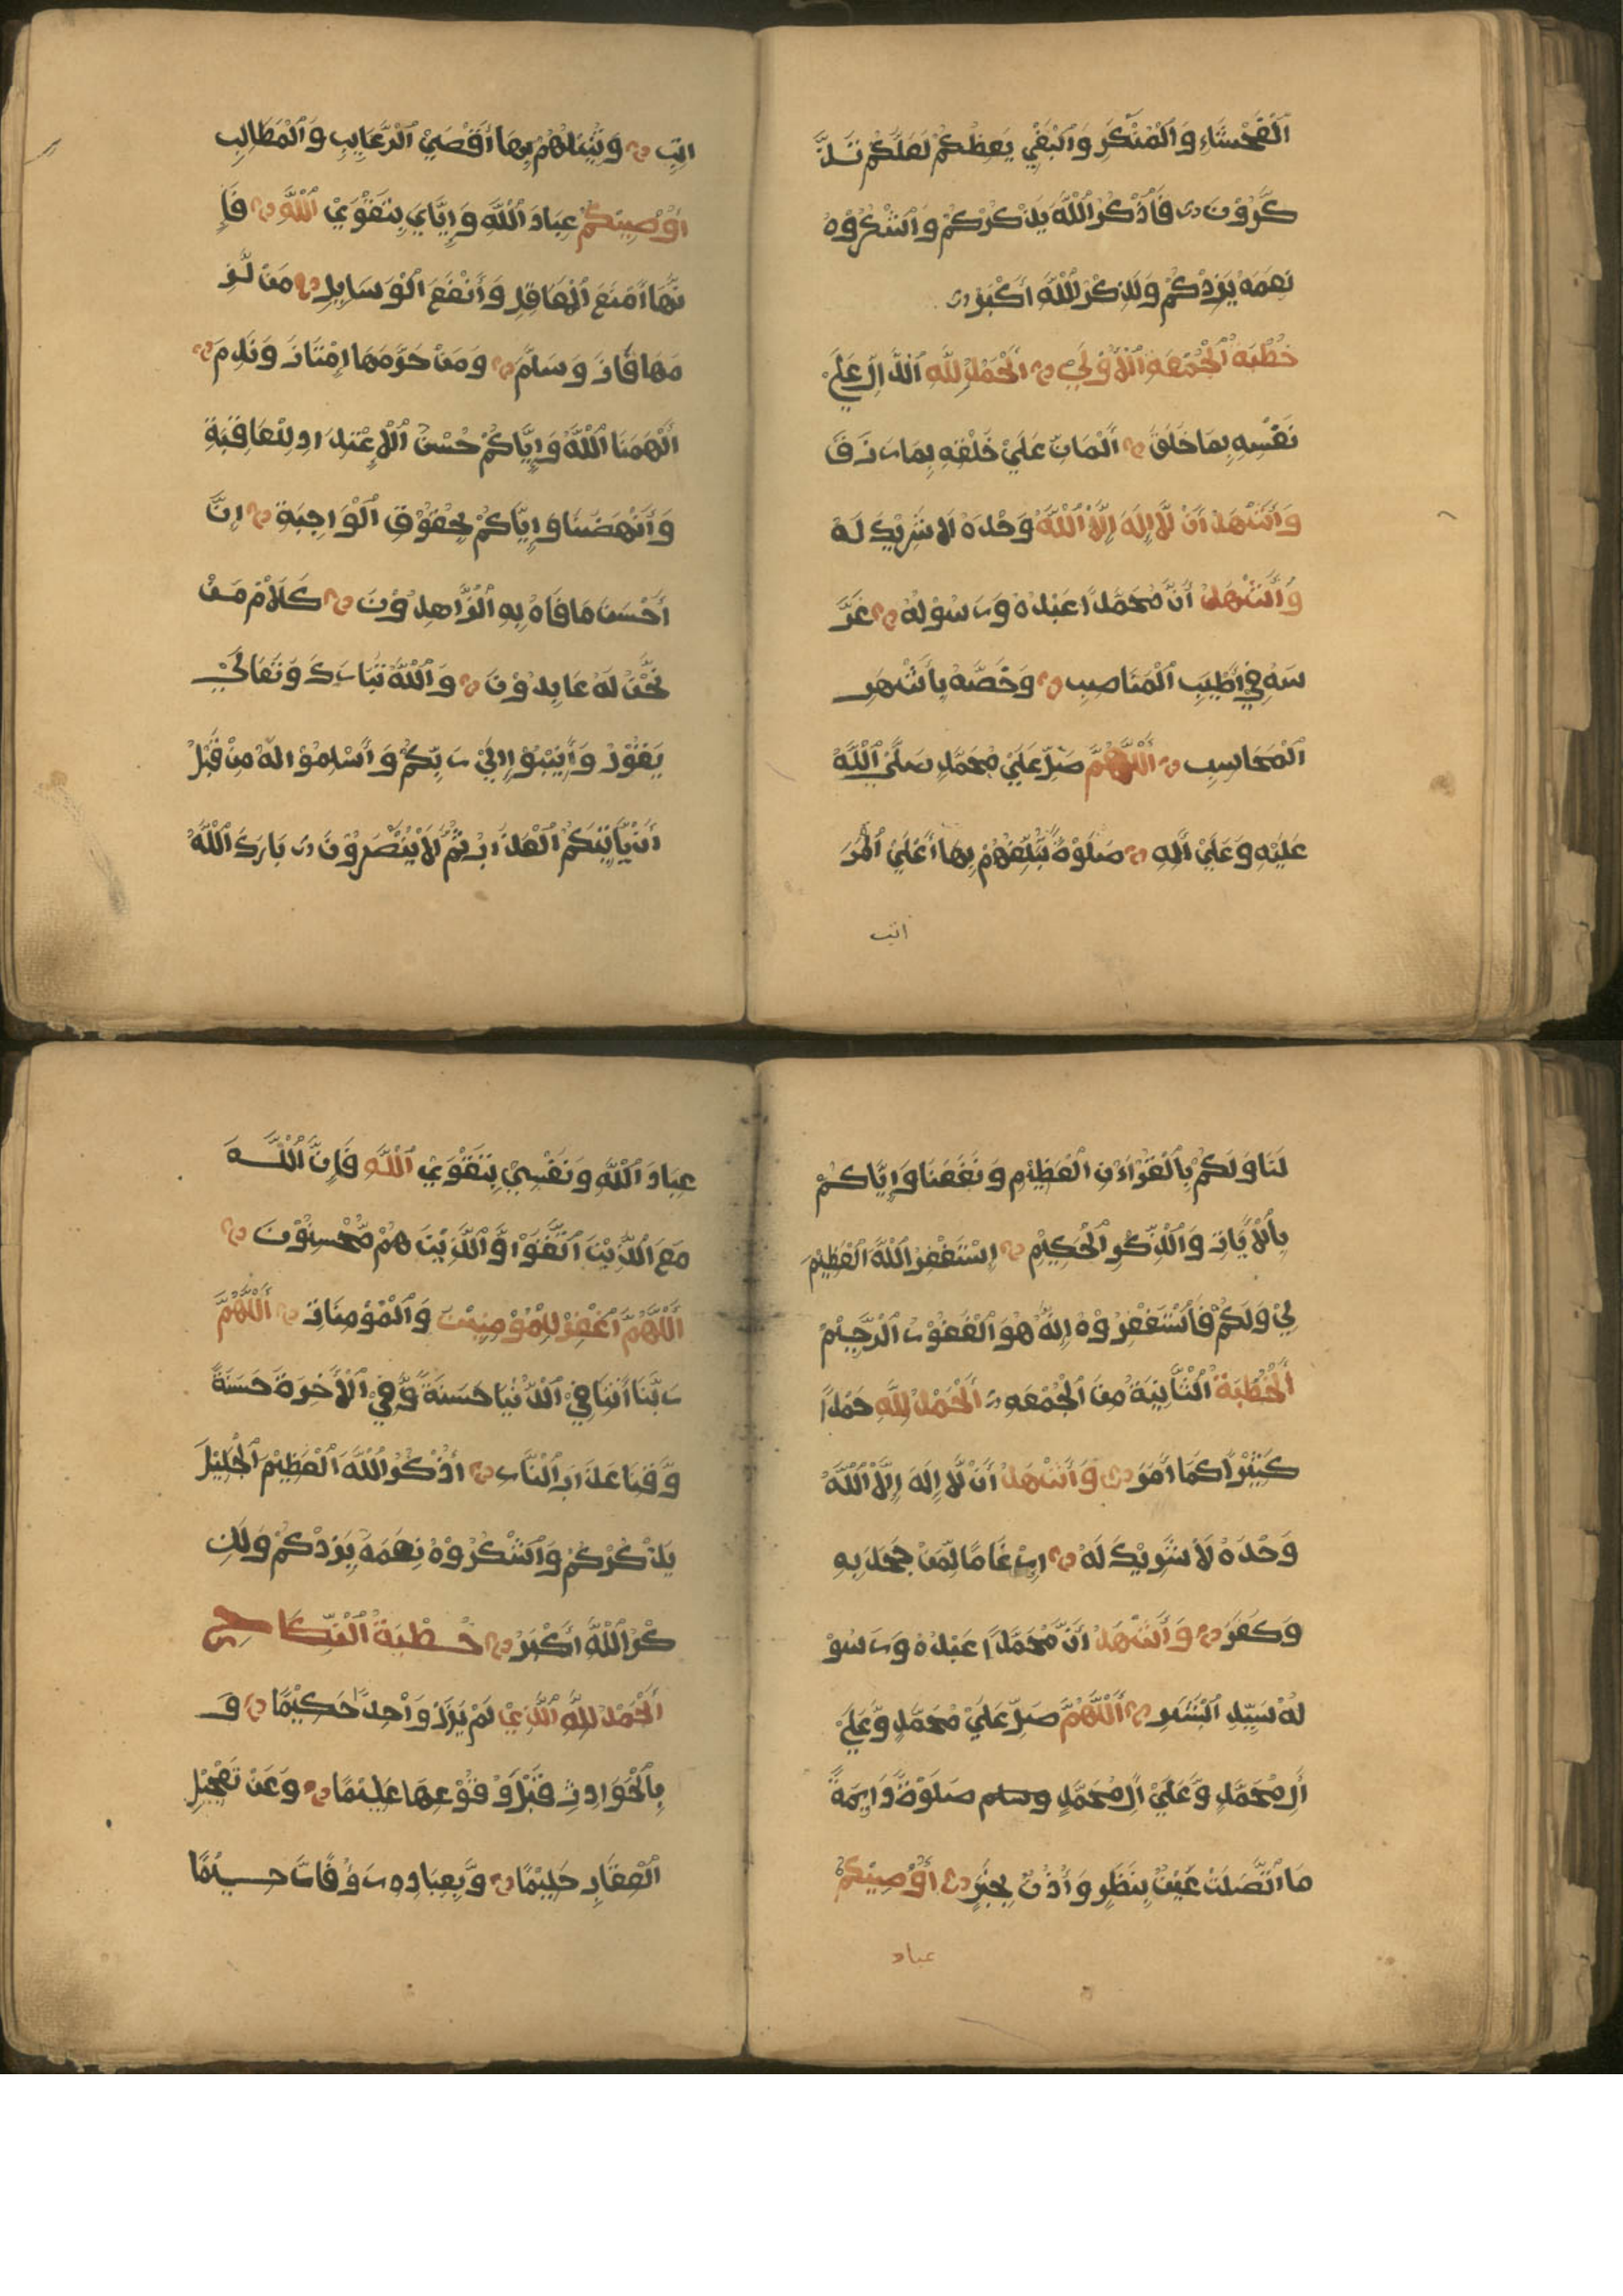 اَلْفَحْشَاءِ وَالْمُنْكَرِ وَالْبَغْيِ يَعِظُكُمْ لَعَلَّكُمْ تَذَّ
كَّرُوْنَ فَاذْكُرُ اللّٰهَ يَذْكُرْكُمْ وَاشْكُرُوْهُ
نِعَمَهُ يَزِدْكُمْ وَلَذِكْرُ اللّٰهِ أَكْبَرُ
خُطْبَةُ الْجُمْعَةِ الْأُوْلَىٰ اَلْحَمْدُ لِلّٰهِ الدَّالِّ عَلَىٰ
نَفْسِهِ بِمَا خَلَقَ اَلْمَانِّ عَلَىٰ خَلْقِهِ بِمَا رَزَقَ
وَأَشْهَدُ أَنْ لَّا إِلٰهَ إِلَّا اللّٰهُ وَحْدَهُ لَا شَرِيْكَ لَهُ
وَأَشْهَدُ أَنَّ مُحَمَّدًا عَبْدُهُ وَرَسُوْلُهُ غَرَّ
سَهُ فِيْ أَطْيَبِ الْمَنَاصِبِ وَخَصَّهُ بِأَشْهَرِ
الْمَحَاسِبِ اَللّٰهُمَّ صَلِّ عَلَىٰ مُحَمَّدٍ صَلَّى اللّٰهُ
عَلَيْهِ وَعَلَىٰ اٰلِهِ صَلَوٰةً تُبَلِّغُهُمْ بِهَا أَعْلَىٰ الْمَرَ
اتب
اتِبِ وَتُنِيْلُهُمْ بِهَا أَقْصَىٰ الرَّغَايِبِ وَالْمَطَالِبِ
أُوْصِيْكُمْ عِبَادَ اللّٰهِ وَإِيَّايَ بِتَقْوَىٰ اللّٰهِ فَإِ
نَّهَا أَمْنَعُ الْمَعَاقِلِ وَأَنْفَعُ الْوَسَايِلِ مَنْ لَّزِ
مَهَا فَازَ وَسَلِمَ وَمَنْ حُرِّمَهَا امْتَازَ وَنَدِمَ
أَلْهَمَنَا اللّٰهُ وَإِيَّاكُمْ حُسْنَ الْاِعْتِدَادِ لِلْعَاقِبَةِ
وَأَنْهَضَنَا وَإِيَّاكُمْ بِحُقُوْقِ الْوَاجِبَةِ إِنَّ
أَحْسَنَ مَا فَاهَ بِهِ الزَّاهِدُوْنَ كَلَامُ مَنْ
نَّحْنُ لَهُ عَابِدُوْنَ وَاللّٰهُ تَبَارَكَ وَتَعَالَىٰ
يَقُوْلُ وَأَنِيْبُوْا إِلَىٰ رَبِّكُمْ وَأَسْلِمُوْا لَهُ مِنْ قَبْلِ
أَنْ يَّأْتِيَكُمُ الْعَذَابُ ثُمَّ لَا يُنْصَرُوْنَ بَارَكَ اللّٰهُ
لَنَا وَلَكُمْ بِالْقُرْاٰنِ الْعَظِيْمِ وَنَفَعَنَا وَإِيَّاكُمْ
بِالْاٰيَاتِ وَالذِّكْرِ الْحَكِيْمِ اِسْتَغْفِرُ اللّٰهَ الْعَظِيْمَ
لِيْ وَلَكُمْ فَاسْتَغْفِرُوْهُ إِنَّهُ هُوَ الْغَفُوْرُ الرَّحِيْمُ
اَلْخُطْبَةُ الثَّانِيَةُ مِنَ الْجُمْعَةِ اَلْحَمْدُ لِلّٰهِ حَمْدًا
كَثِيْرًا كَمَا أَمَرَ وَأَشْهَدُ أَنْ لَّا إِلٰهَ إِلَّا اللّٰهُ
وَحْدَهُ لَا شَرِيْكَ لَهُ إِرْغَامًا لِّمَنْ جَحَدَ بِهِ
وَكَفَرَ وَأَشْهَدُ أَنَّ مُحَمَّدًا عَبْدُهُ وَرَسُوْ
لُهُ سَيِّدِ الْبَشَرِ اَللّٰهُمَّ صَلِّ عَلَىٰ مُحَمَّدٍ وَّعَلَىٰ
اٰلِ مُحَمَّدٍ وَّعَلَىٰ اٰلِ مُحَمَّدٍ وسلم صَلَوٰةً دَايِمَةً
مَا اتَّصَلَتْ عَيْنٌ بِنَظَرٍ وَأُذُنٌ بِخَبَرٍ أُوْصِيْكُمْ
عباد
عِبَادَ اللّٰهِ وَنَفْسِيْ بِتَقْوَىٰ اللّٰهِ فَإِنَّ اللّٰهَ
مَعَ الَّذِيْنَ اتَّقَوْا وَّالَّذِيْنَ هُمْ مُّحْسِنُوْنَ
اَللّٰهُمَّ اغْفِرْ لِلْمُؤْمِنِيْنَ وَالْمُؤْمِنَاتِ اَللّٰهُمَّ
رَبَّنَا اٰتِنَا فِيْ الدُّنْيَا حَسَنَةً وَّفِيْ الْاٰخِرَةِ حَسَنَةً
وَّقِنَا عَذَابَ النَّارِ أُذْكُرُ اللّٰهَ الْعَظِيْمَ الْجَلِيْلَ
يَذْكُرْكُمْ وَاشْكُرُوْهُ نِعَمَهُ يَزِدْكُمْ وَلَذِ
كْرُ اللّٰهِ أَكْبَرُ خُطْبَةُ النِّكَاحِ
اَلْحَمْدُ لِلّٰهِ الَّذِيْ لَمْ يَزَلْ وَاحِدًا حَكِيْمًا وَ
بِالْحَوَادِثِ قَبْلَ وُقُوْعِهَا عَلِيْمًا وَعَنْ تَعْجِيْلِ
الْعِقَابِ حَلِيْمًا وَّبِعِبَادِهِ رَؤُفًا رَّحِيْمًا